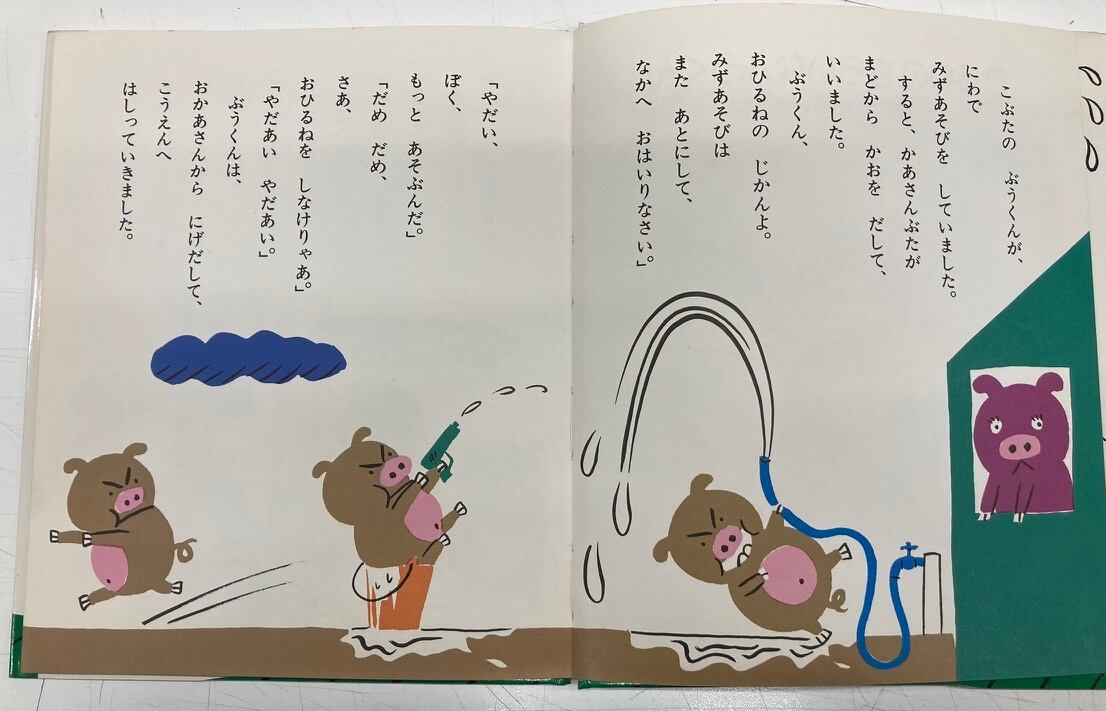 こぶたの　ぶうくんが、
にわで
みずあそびを　していました。
すると、かあさんぶたが
まどから　かおを　だして、
いいました。
「ぶうくん、
おひるねの　じかんよ。
みずあそびは
また　あとにして、
なかへ　おはいりなさい。」
「やだい、
ぼく、
もっと　あそぶんだ。」
「だめ　だめ、
さあ、
おひるねを　しなけりゃあ。」
「やだあい　やだあい。」
ぶうくんは、
おかあさんから　にげだして、
こうえんへ
はしっていきました。